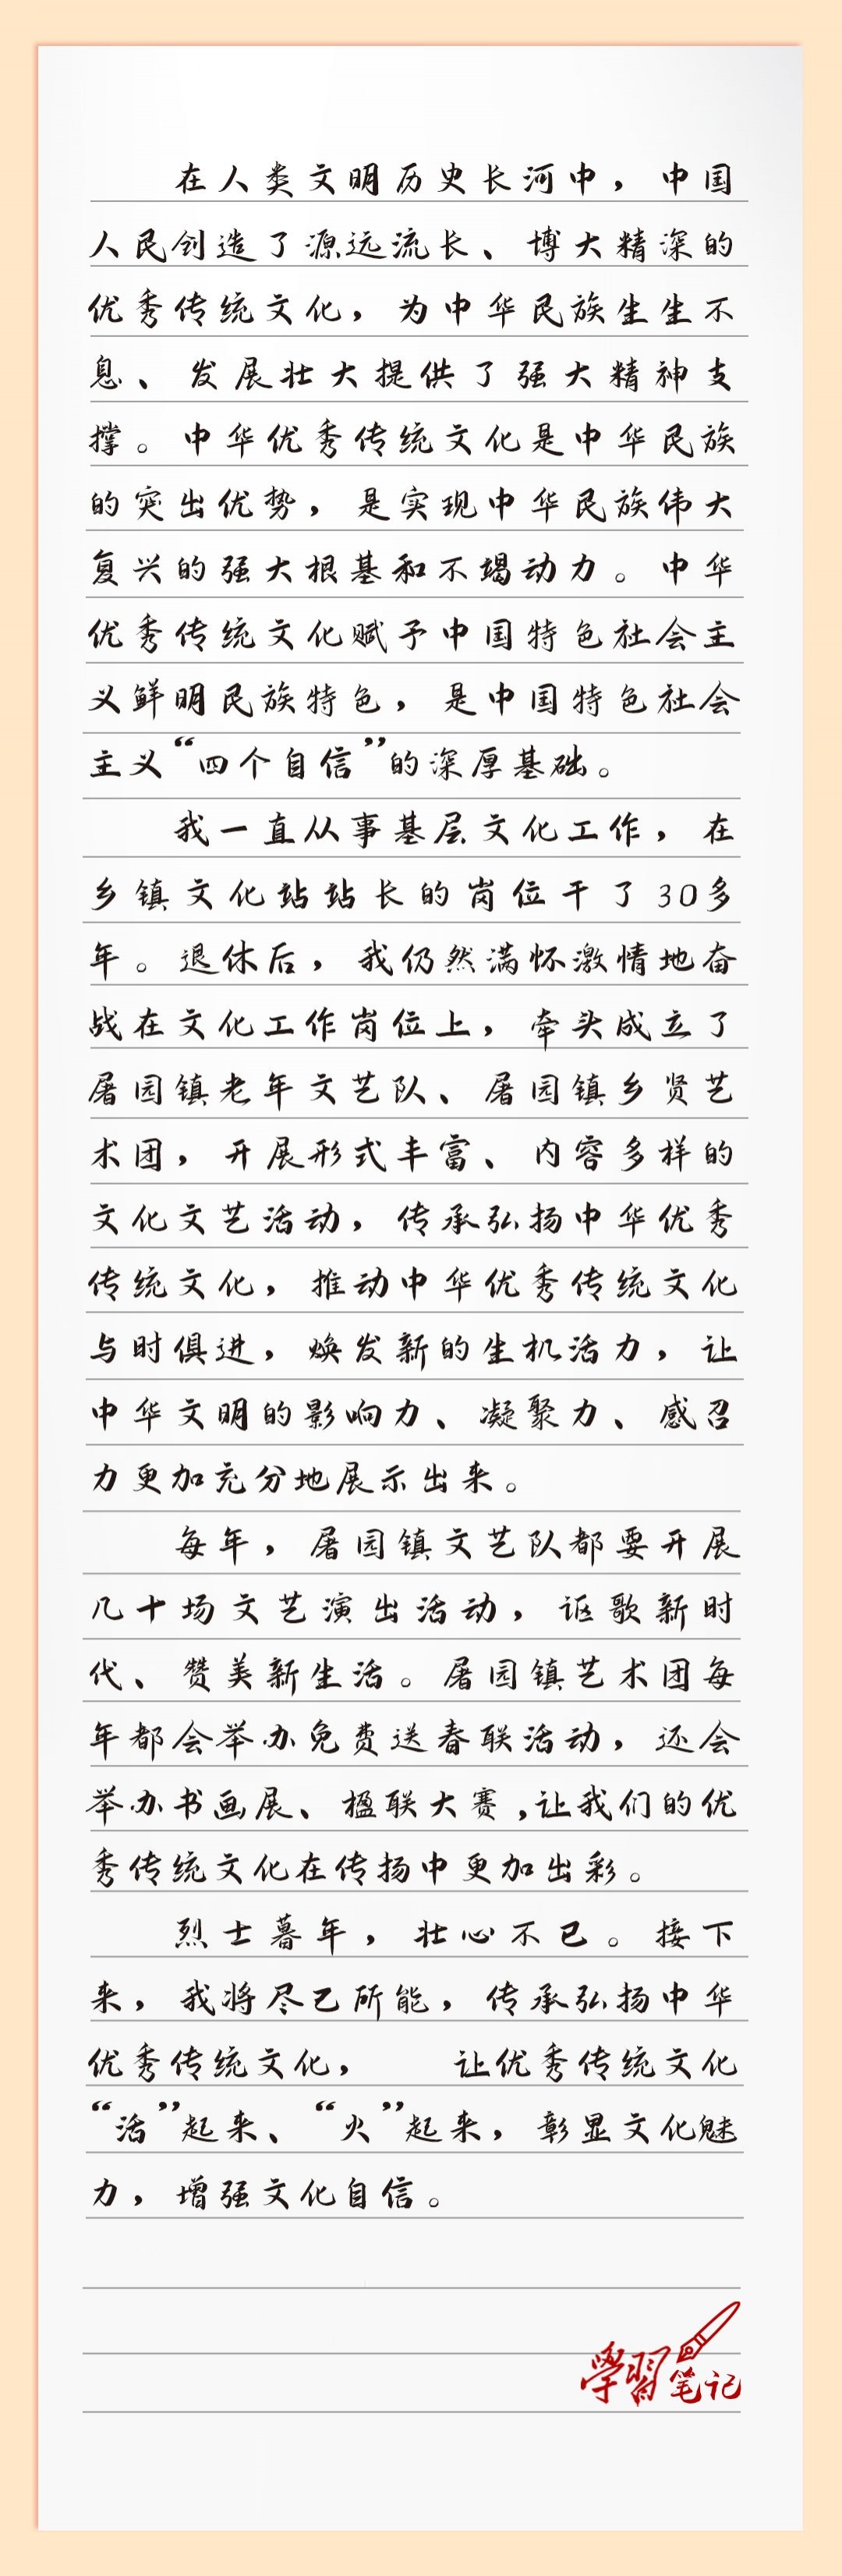 在人类文明历史长河中，中国
人民创造了源远流长、博大精深的
优秀传统文化，为中华民族生生不
息、发展壮大提供了强大精神支
撑。中华优秀传统文化是中华民族
的突出优势，是实现中华民族伟大
复兴的强大根基和不竭动力。中华
优秀传统文化赋予中国特色社会主
义鲜明民族特色，是中国特色社会
主义“四个自信”的深厚基础。
我一直从事基层文化工作，在
乡镇文化站站长的岗位干了30多
年。退休后，我仍然满怀激情地奋
战在文化工作岗位上，牵头成立了
屠园镇老年文艺队、屠园镇乡贤艺
术团，开展形式丰富、内容多样的
文化文艺活动，传承弘扬中华优秀
传统文化，推动中华优秀传统文化
与时俱进，焕发新的生机活力，让
中华文明的影响力、凝聚力、感召
力更加充分地展示出来。
每年，屠园镇文艺队都要开展
几十场文艺演出活动，讴歌新时
代、赞美新生活。屠园镇艺术团每
年都会举办免费送春联活动，还会
举办书画展、楹联大赛,让我们的优
秀传统文化在传扬中更加出彩。
烈士暮年，壮心不已。接下
来，我将尽己所能，传承弘扬中华
优秀传统文化，　　让优秀传统文化
“活”起来、“火”起来，彰显文化魅
力，增强文化自信。
學習笔记